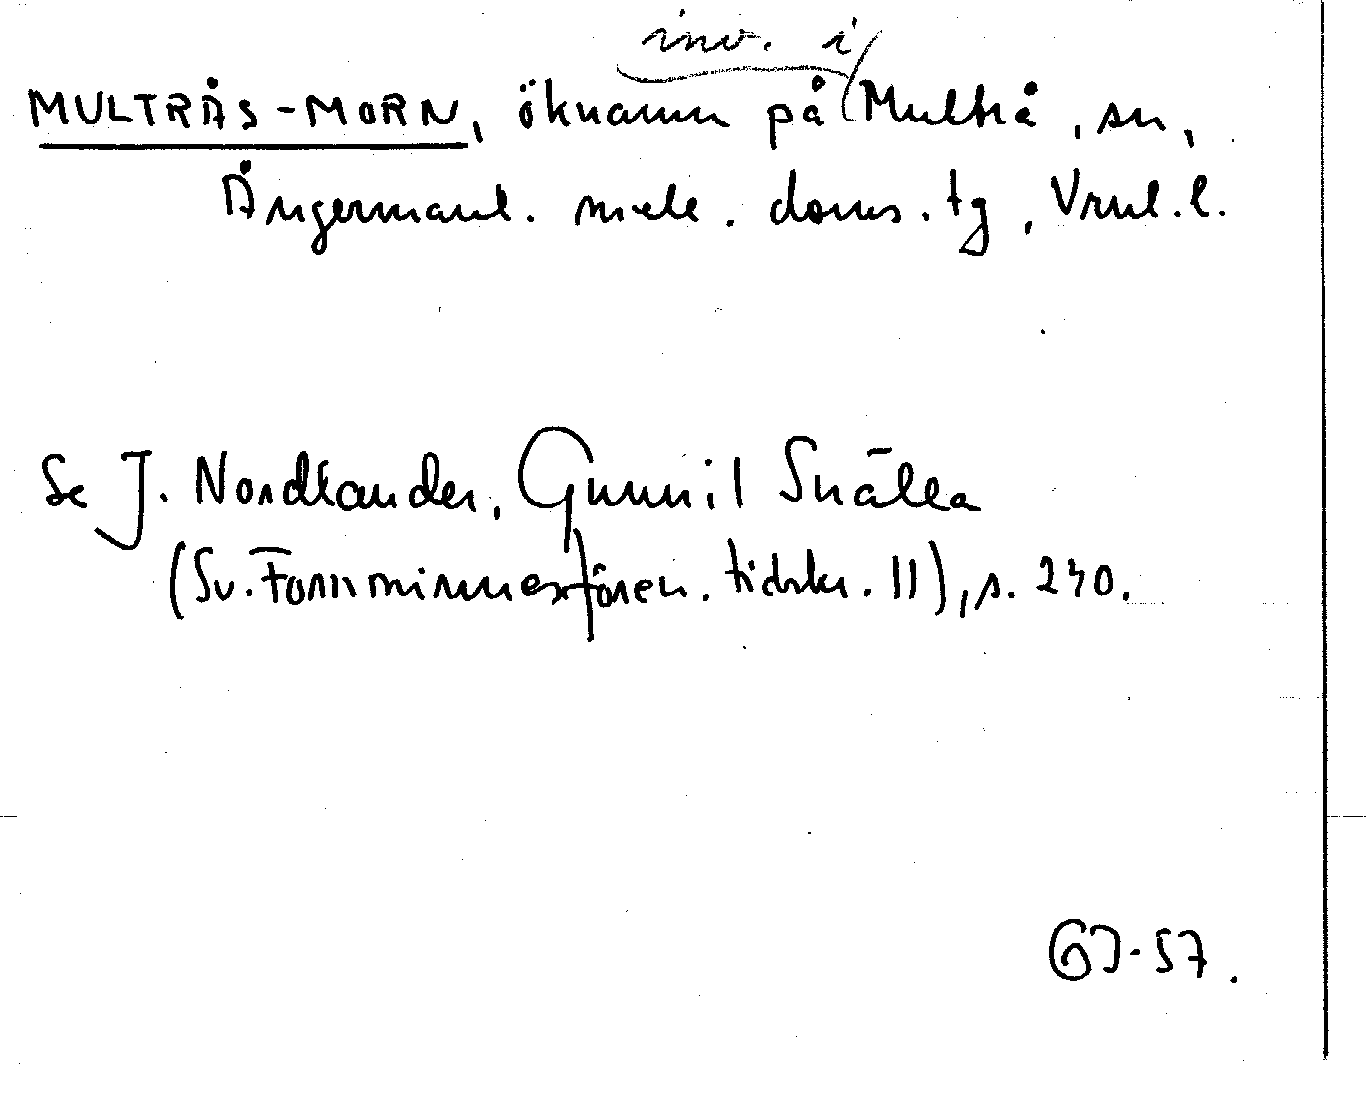 inv. i
MULTRÅS-MORN, öknamn på Multrå, sn,
Ångermanl. mele. doms. tg, Vrnl. l.
Se J. Nordlander, Gunnil Snälla
(Sv. Fornminnesfören. tidskr. 11), s. 240.
GJ-57.